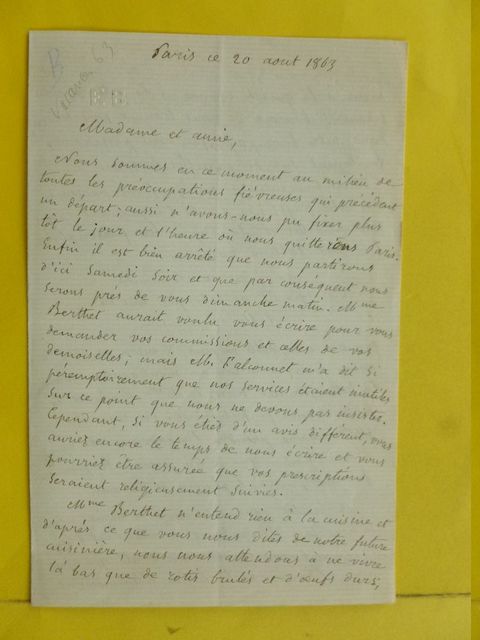 B
Vacances 63
Paris ce 20 aout 1863
Madame et amie,
Nous sommes en ce moment au milieu de
toutes les préoccupations fiévreuses qui précèdent
un départ; aussi n'avons-nous pu fixer plus
tôt le jour et l'heure où nous quitterons Paris.
Enfin il est bien arrêté que nous partirons
d'ici Samedi soir et que par conséquent nous
serons près de vous dimanche matin. Mme
Berthet aurait voulu vous écrire pour vous
demander vos commissions et celles de vos
demoiselles; mais M. Falconnet m'a dit si
péremptoirement que nos services étaient inutiles
sur ce point que nous ne devons pas insister.
Cependant, si vous étiez d'un avis différent, vous
auriez encore le temps de nous écrire et vous
pourriez être assurée que vos prescriptions
seraient religieusement suivies.
Mme Berthet n'entend rien à la cuisine et
d'après ce que vous nous dites de notre future
cuisinière, nous nous attendons à ne vivre
là bas que de rotis brulés et d'œufs durs;